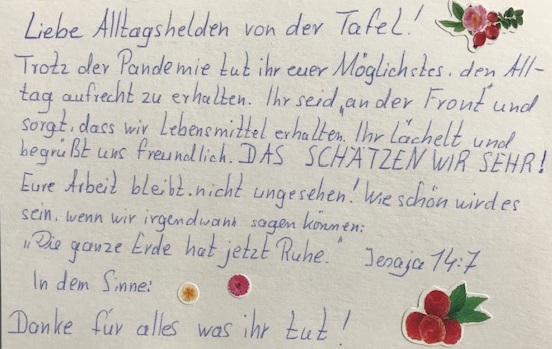 Liebe Alltagshelden von der Tafel!
Trotz der Pandemie tut ihr euer Möglichstes, den All-
tag aufrecht zu erhalten. Ihr seid „an der Front" und
sorgt, dass wir Lebensmittel erhalten. Ihr lächelt und
begrüßt uns freundlich. DAS SCHÄTZEN WIR SEHR!
Eure Arbeit bleibt nicht ungesehen! Wie schön wird es
sein, wenn wir irgendwann sagen können:
„Die ganze Erde hat jetzt Ruhe." Jesaja 14:7
In dem Sinne:
Danke für alles was ihr tut!